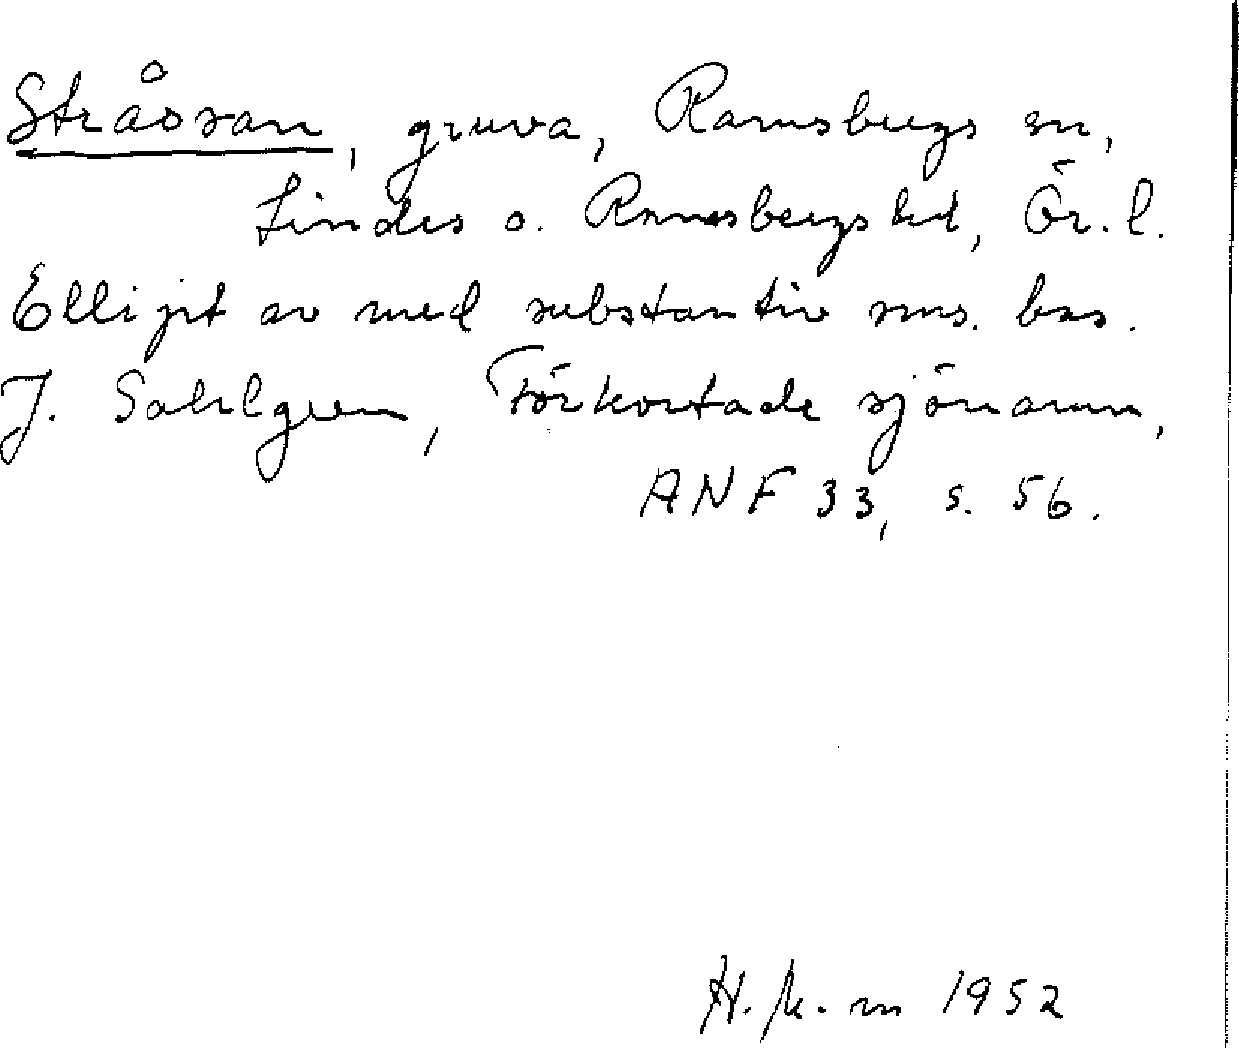 Stråssan, gruva, Ramsbergs sn,
Lindes o. Ramsbergs bd, Ör. l.
Ellipt av med substantiv sms. bss.
J. Sahlgren, Förkortade sjönamn,
ANF 33, s. 56.
H. k. m 1952